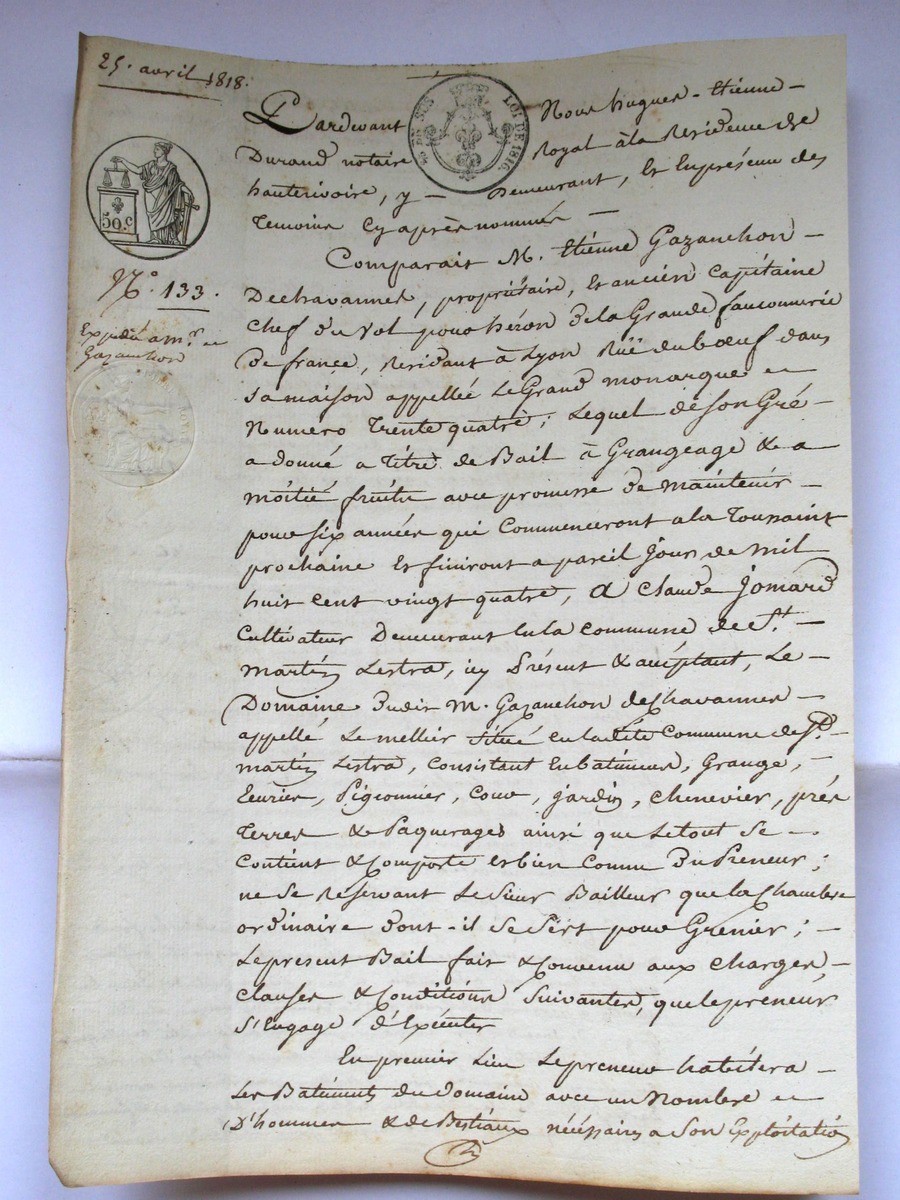 25. avril 1818.
LOI DE 1816.
50 c
N.o 133.
Expédié a mr.
Gazanchon
Pardevant Nous hugues-Etienne-
Durand notaire Royal à la Residence de
hauterivoire, y - Demeurant, Et En présence des
Temoins Cy après nommés -
Comparait M. Etiénne Gazanchon -
Dechavannes, propriétaire, Et ancién Capitaine
Chef du vol pour héron De la Grande fauconnerie
De france, Residant à Lyon Ruë du bœuf dans
Sa maison appellée Le Grand monarque
Numero Trente quatre; Lequel de son Gré -
a donné a Titre de Bail à Grangeage & a
moitié fruits avec promesse De maintenir -
pour six années qui Commenceront a la Toussaint
prochaine Et finiront a pareil Jour de mil
huit Cent vingt quatre, a Claude Jomard
Cultivateur Demeurant En la Commune de St. -
martin Lestra, icy Présent & acceptant, Le -
Domaine dudit M. Gazanchon dechavannes -
appellé Le mellier Situé en la dite Commune de St. -
martin Lestra, Consistant En batiments, Grange, -
Ecuries, Pigeonnier, Cour, jardin, Chenevier, prés
Terres & Paquerages ainsi que Le tout Se -
Contient & Comporte et bien Connu du Preneur;
ne Se Réservant Le Sieur Bailleur que la Chambre
ordinaire dont-il Se Sert pour Grenier; -
Le present Bail fait & Convenu aux Charges, -
Clauses & Conditions Suivantes, que le preneur
S'Engage d'Exécuter
En premier Lieu Le preneur habitera -
Les Batiments du domaine avec un Nombre
D'hommes & de Bestiaux nécéssaires a Son Exploitation